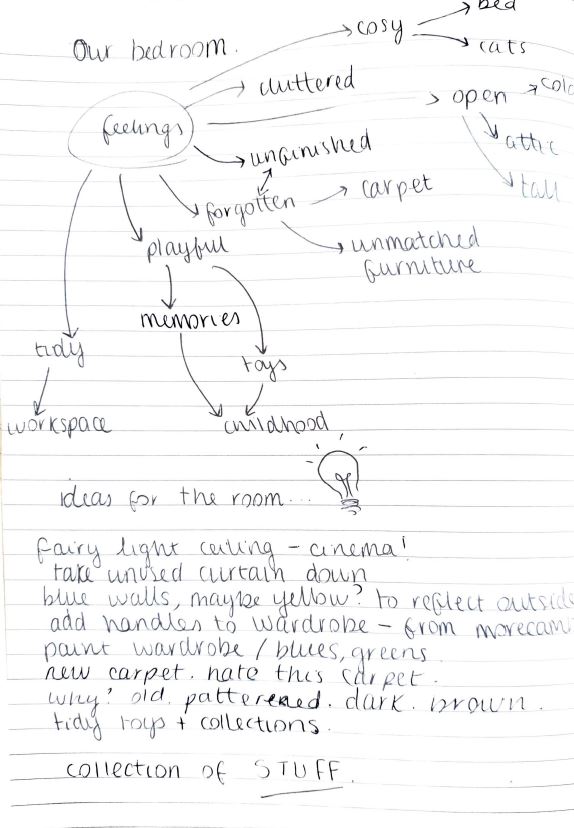 Our bedroom.
bed
cosy
cats
cluttered
open
cold
feelings
attic
unfinished
tall
forgotten
carpet
playful
unmatched
furniture
memories
tidy
toys
workspace
childhood
ideas for the room...
fairy light ceiling - cinema!
take unused curtain down
blue walls, maybe yellow? to reflect outside
add handles to wardrobe - from morecam
paint wardrobe / blues, greens
new carpet. hate this carpet.
why? old. patterened. dark. brown.
tidy toys + collections.
collection of STUFF.